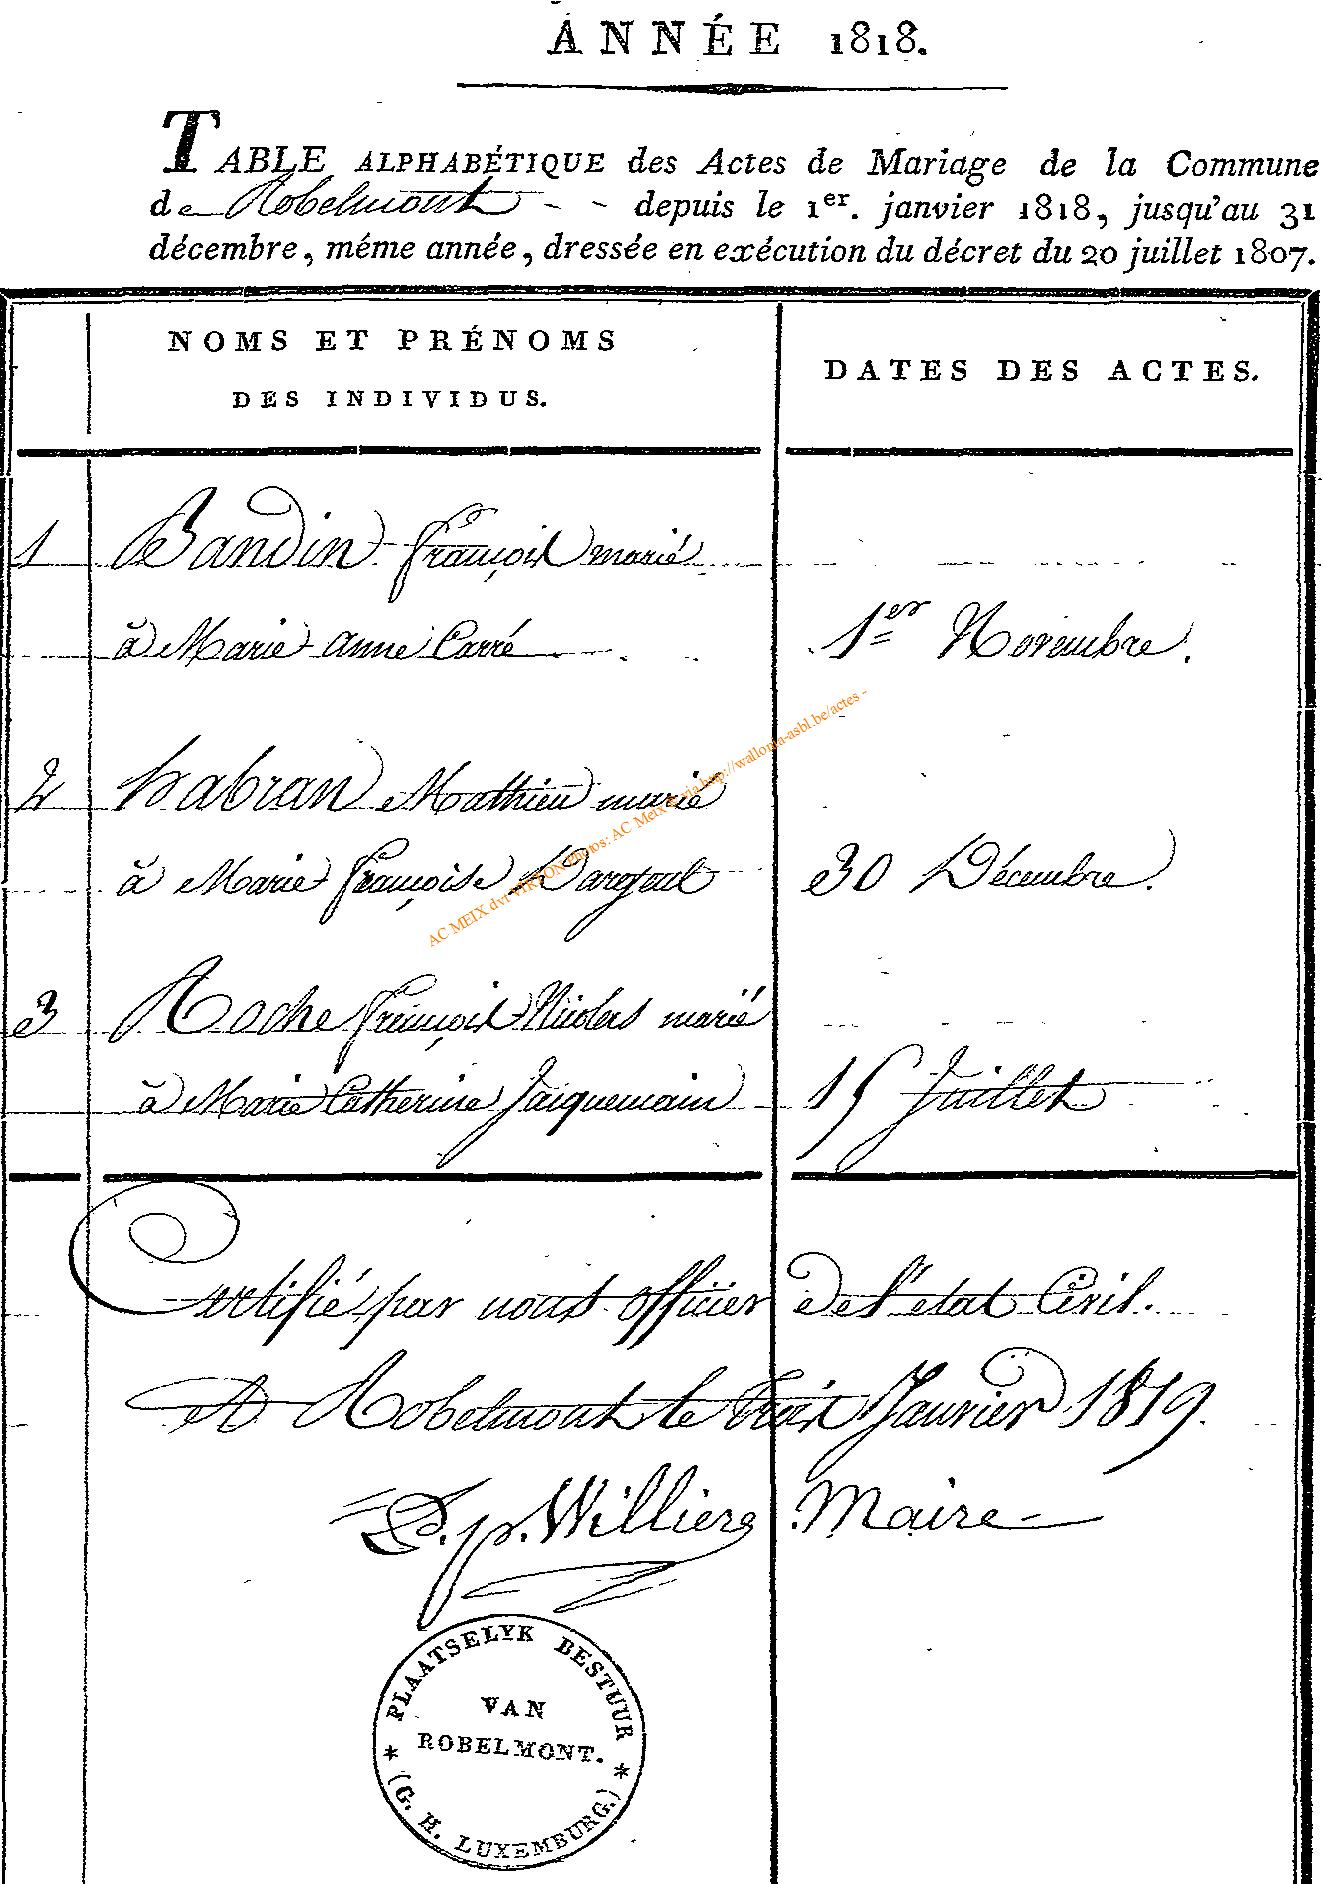 ANNÉE 1818.
TABLE ALPHABÉTIQUE des Actes de Mariage de la Commune
de Robelmont - - depuis le 1er. janvier 1818, jusqu'au 31
décembre, méme année, dressée en exécution du décret du 20 juillet 1807.
NOMS ET PRÉNOMS
DES INDIVIDUS.
DATES DES ACTES.
1 Bandin François marié
à Marie anne Carré 1er Novembre.
2 habran Mathieu marié
à Marie Françoise 30 Décembre.
3 Roche François Nicolas marié
à Marie Catherine Jacquemain 15 Juillet
Certifié par nous officier de l'etat Civil.
A Robelmont le trois Janvier 1819.
p. Williere Maire
PLAATSELYK BESTUUR
VAN
ROBELMONT.
(G. H. LUXEMBURG.)
AC MEIX dvt VIRTON Photos: AC Meix & via http://wallonia-asbl.be/actes -